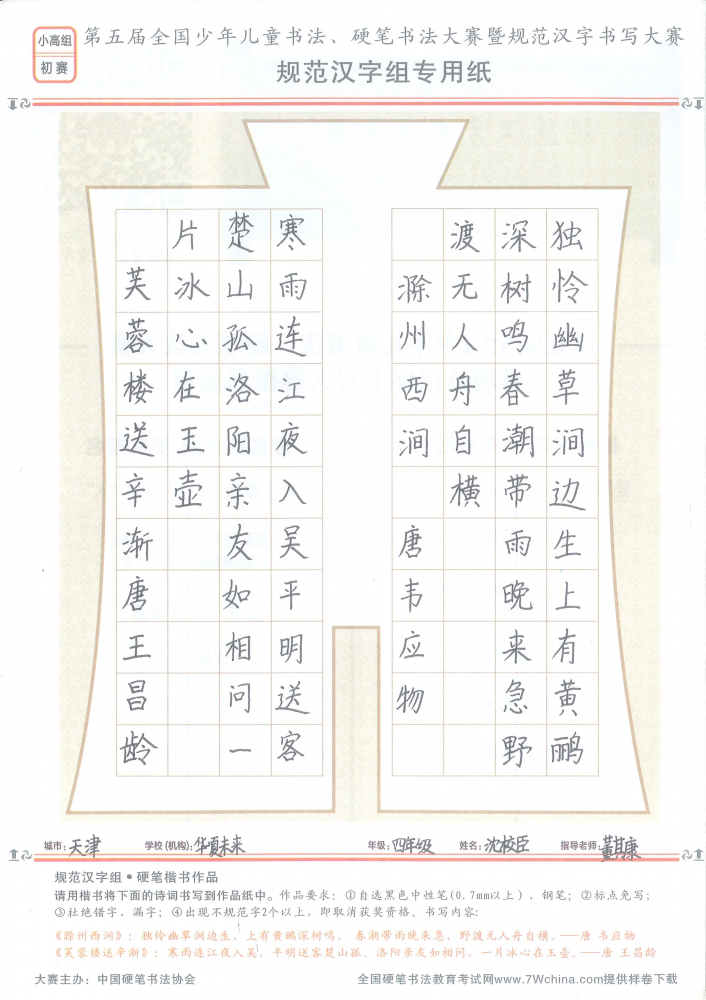 小高组
初赛
第五届全国少年儿童书法、硬笔书法大赛暨规范汉字书写大赛
规范汉字组专用纸
独怜幽草涧边生上有黄鹂
深树鸣春潮带雨晚来急野
渡无人舟自横
滁州西涧 唐韦应物
寒雨连江夜入吴平明送客
楚山孤洛阳亲友如相问一
片冰心在玉壶
芙蓉楼送辛渐唐王昌龄
城市：天津 学校(机构)：华夏未来 年级：四年级 姓名：沈校臣 指导老师：董琪康
规范汉字组●硬笔楷书作品
请用楷书将下面的诗词书写到作品纸中。作品要求：①自选黑色中性笔(0.7mm以上)、钢笔；②标点免写；
③杜绝错字、漏字；④出现不规范字2个以上，即取消获奖资格。书写内容：
《滁州西涧》：独怜幽草涧边生，上有黄鹂深树鸣。 春潮带雨晚来急，野渡无人舟自横。——唐 韦应物
《芙蓉楼送辛渐》：寒雨连江夜入吴，平明送客楚山孤。洛阳亲友如相问，一片冰心在玉壶。——唐 王昌龄
大赛主办：中国硬笔书法协会 全国硬笔书法教育考试网www.7Wchina.com提供样卷下载